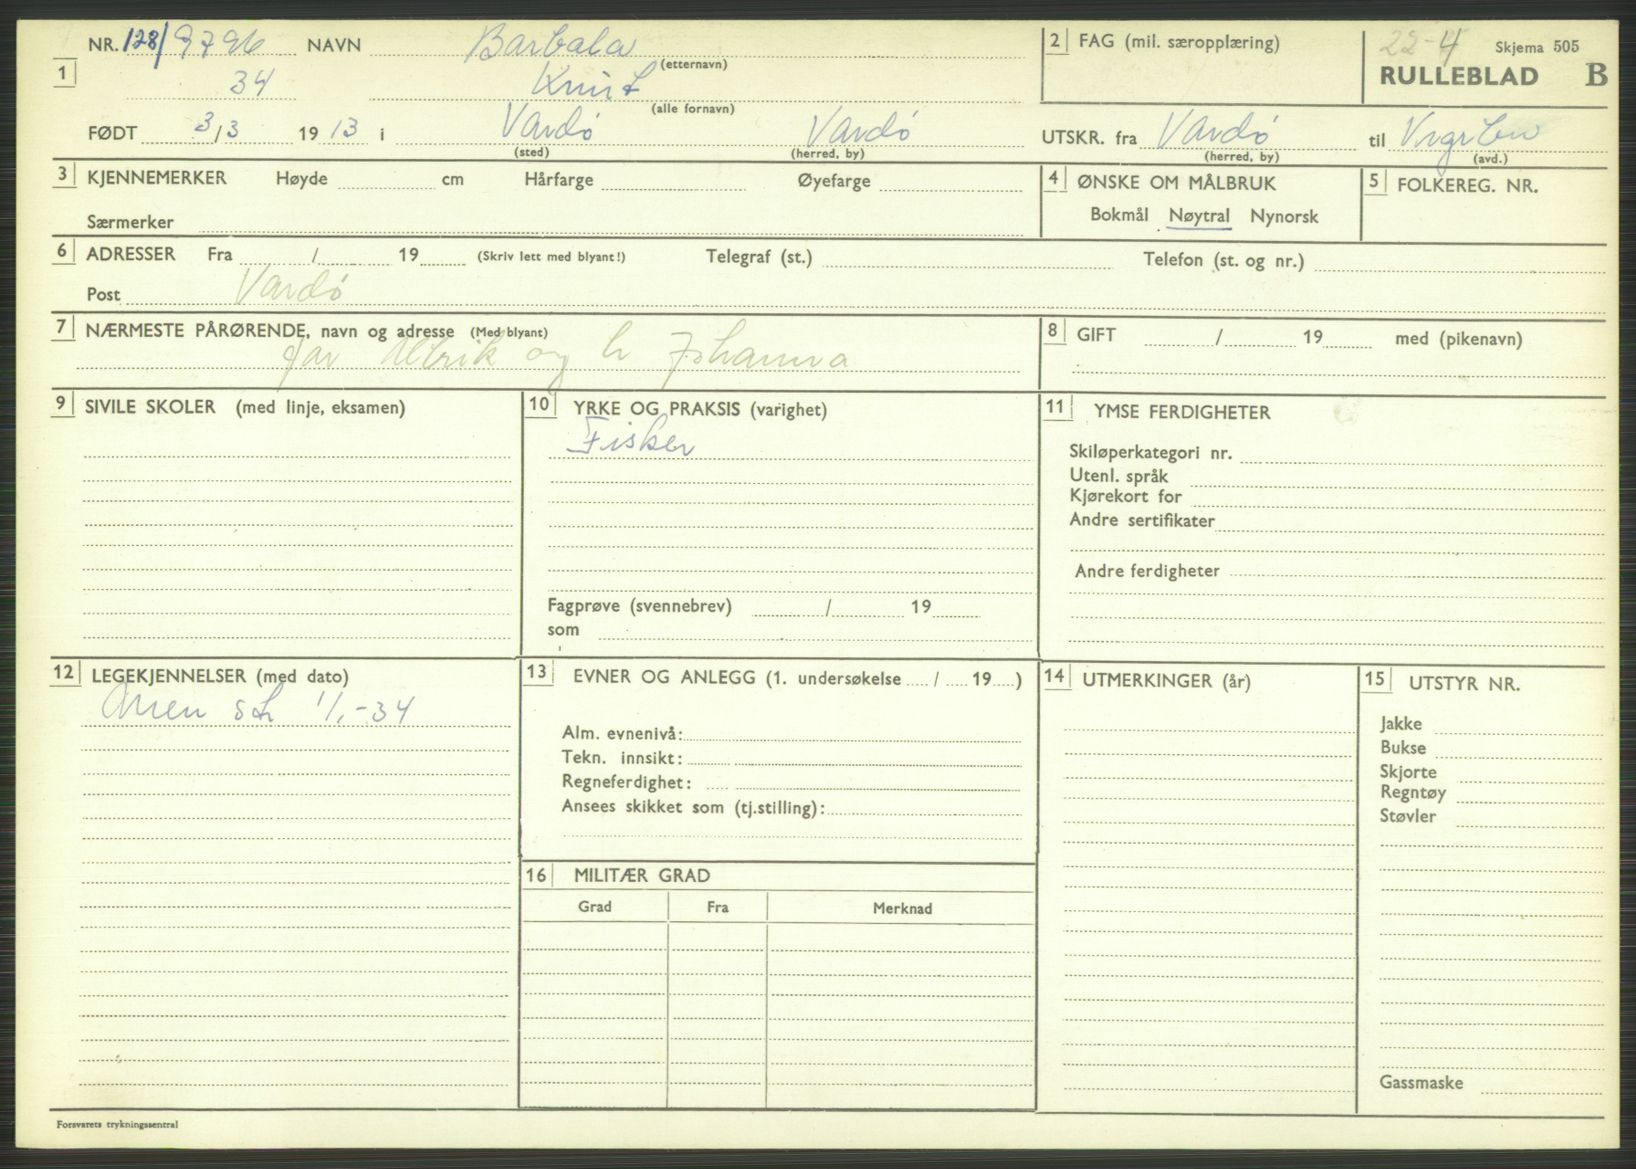 NR. 128/9796 NAVN Barbala 2 FAG (mil. særopplæring) 22-4 Skjema 505
(etternavn)
1 34 Knut RULLEBLAD B
(alle fornavn)
FØDT 3/3 1913 i Vardø Vardø UTSKR. fra Vardø til
(sted) (herred, by) (herred, by) (avd.)
3 KJENNEMERKER Høyde cm Hårfarge Øyefarge 4 ØNSKE OM MÅLBRUK 5 FOLKEREG. NR.
Særmerker Bokmål Nøytral Nynorsk
6 ADRESSER Fra / 19 (Skriv lett med blyant!) Telegraf (st.) Telefon (st. og nr.)
Post Vardø
7 NÆRMESTE PÅRØRENDE, navn og adresse (Med blyant) 8 GIFT / 19 med (pikenavn)
far Ulrik og h Johanna
9 SIVILE SKOLER (med linje, eksamen) 10 YRKE OG PRAKSIS (varighet) 11 YMSE FERDIGHETER
Fisker
Skiløperkategori nr.
Utenl. språk
Kjørekort for
Andre sertifikater
Andre ferdigheter
Fagprøve (svennebrev) / 19
som
12 LEGEKJENNELSER (med dato) 13 EVNER OG ANLEGG (1. undersøkelse / 19 ) 14 UTMERKINGER (år) 15 UTSTYR NR.
1/1-34
Jakke
Alm. evnenivå:
Bukse
Tekn. innsikt:
Skjorte
Regneferdighet:
Regntøy
Ansees skikket som (tj.stilling):
Støvler
16 MILITÆR GRAD
Grad Fra Merknad
Gassmaske
Forsvarets trykningssentral